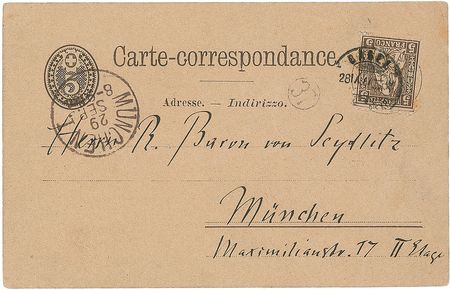 Carte-correspondance.
5
FRANCO
Adresse. — Indirizzo.
MÜNCHEN
29
SEP
8
Herrn R. Baron von Seydlitz
München
Maximilianstr. 17 II Etage